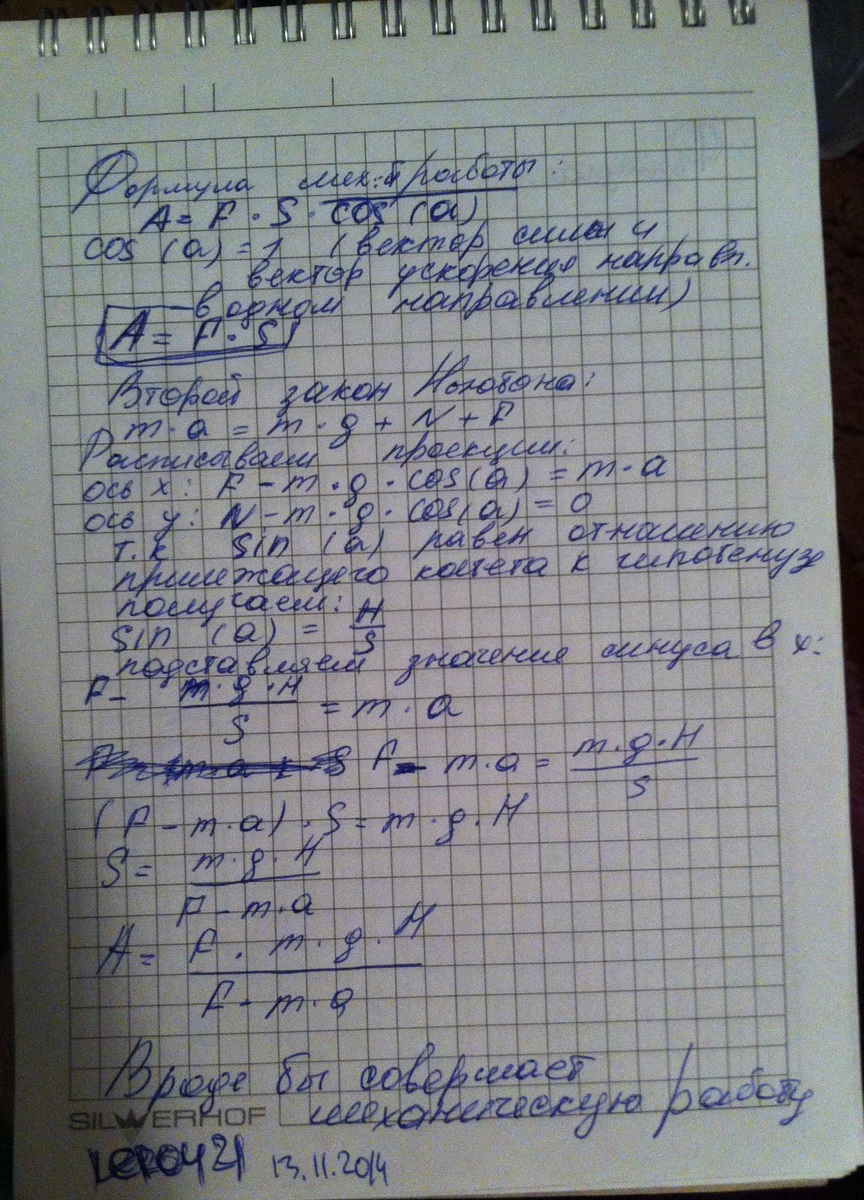 Формула мех-й работы:
A = F · S · cos (a)
cos (a) = 1 (вектор силы и
вектор ускорения направл.
в одном направлении)
A = F · S
Второй закон Ньютона:
m · a = m · g + N + F
Расписываем проекции:
ось x: F - m · g · cos(a) = m · a
ось y: N - m · g · cos(a) = 0
т.к sin (a) равен отношению
прилежащего катета к гипотенузе
получаем:
sin (a) = H/S
подставляем значение синуса в x:
F - m · g · H / S = m · a
F - m · a = m · g · H / S
(F - m · a) · S = m · g · H
S = m · g · H / F - m · a
A = F · m · g · H / F - m · a
Вроде бы совершает
механическую работу
SILWERHOF
13.11.2014